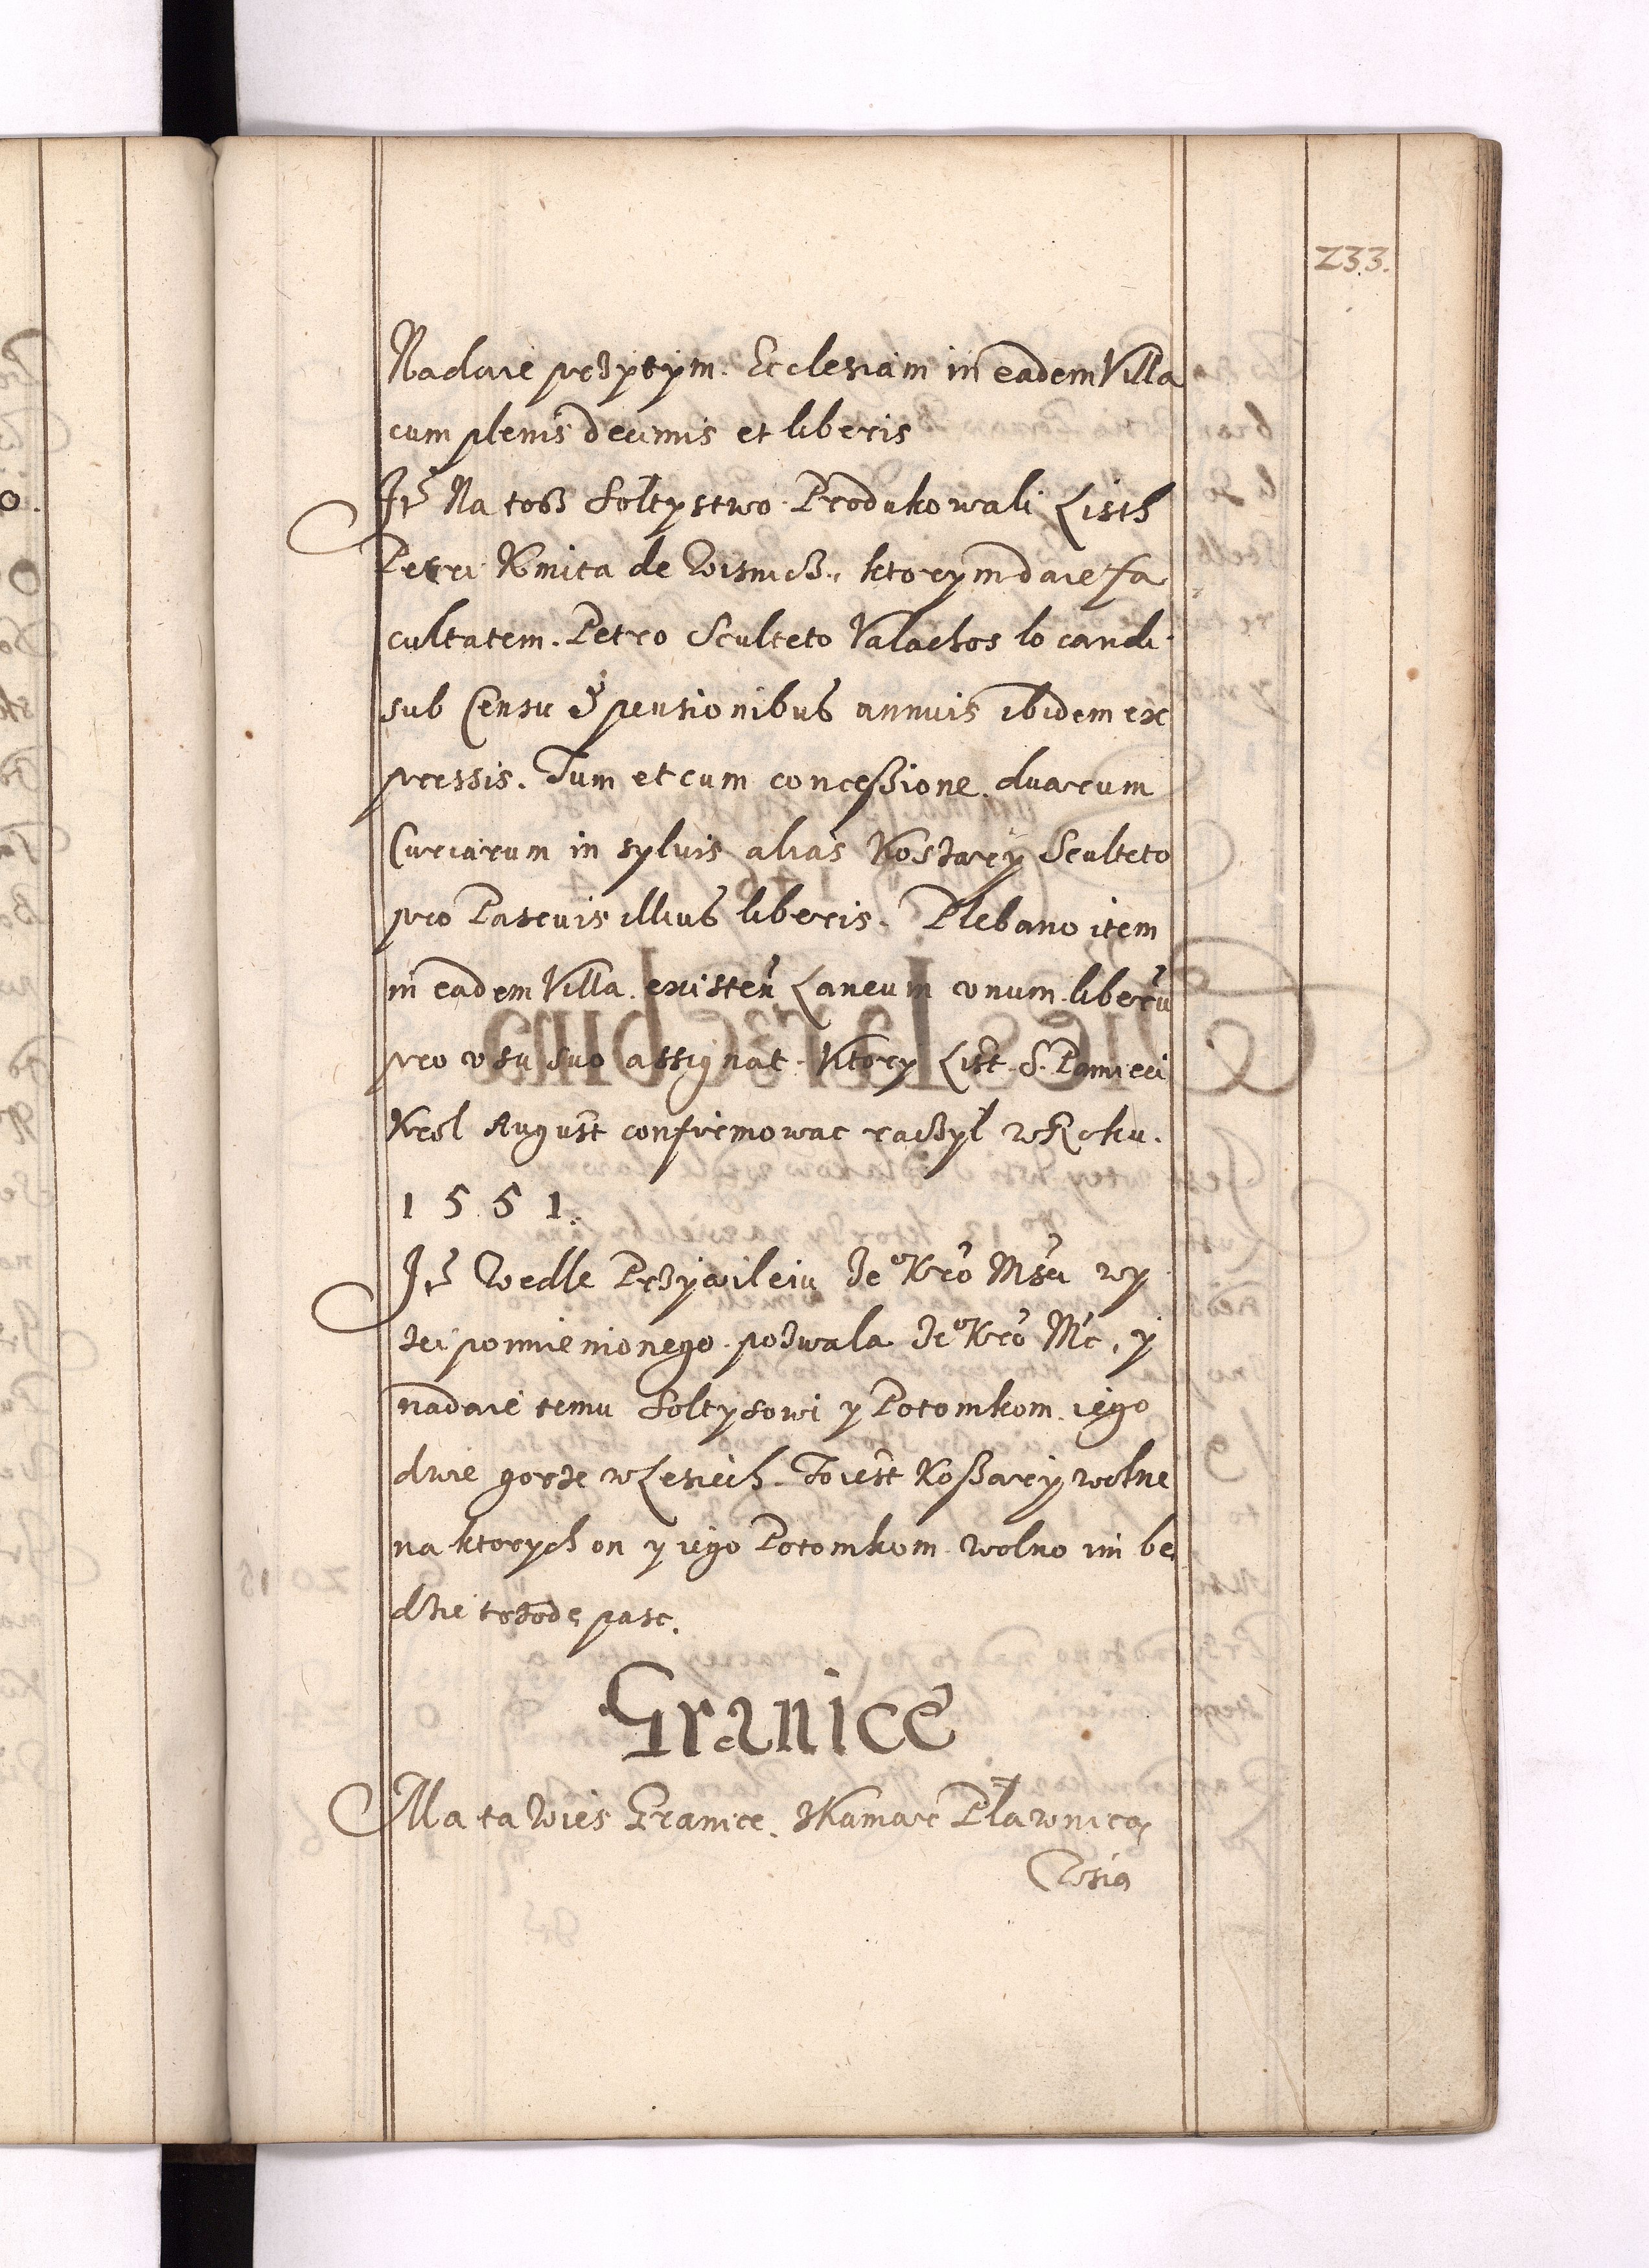 233.
Nadaie przytym. Ecclesiam in eadem Villa
cum plenis decimis et liberis
Itẽ Na toß Soltystwo Produkowali Listh
Petri Kmita de Wisnicz. ktorym daie fa
cultatem. Petro Sculteto Valachos locandi
sub Censu & pensionibus annuis ibidem ex
pressis. Tum et cum conceßione. duarum
Curiarum in syluis alias Koszary Sculteto
pro Pascuis illius liberis. Plebano item
in eadem Villa. existeñ Laneum vnum liberũ
pro vsu suo assignat. Ktory List. S. Pamieci
Krol August confirmowac raczyl w Roku.
1551.
Itẽ Wedle Przywileiu Je° Kró Mści wy
szei pomienionego pozwala Je° Kró Mć. y
nadaie temu Soltysowi y Potomkom iego
dwie gorze w Lesiech. To iest Koßary wolne
na ktorych on y iego Potomkom wolno im be
dzie trzode pasc.
Granice
Ma ta Wies Granice. Z Kamarc Pławnicą
Wsią